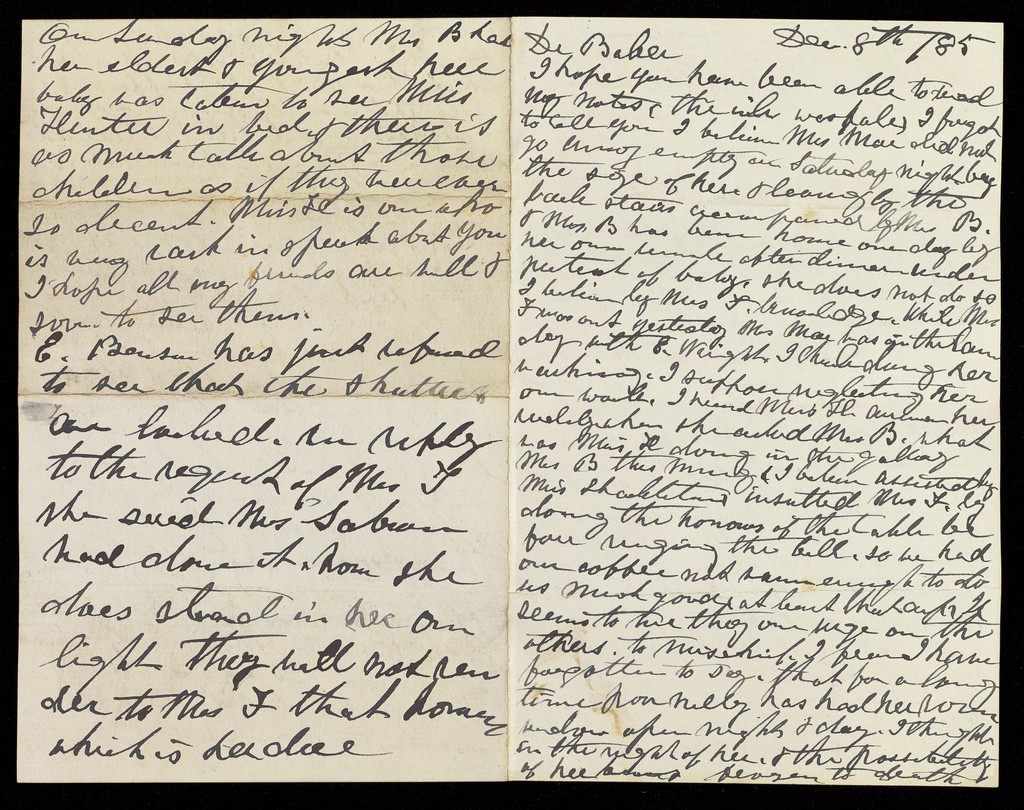 Dec. 8th /85
Dr Baker
I hope you have been able to read
my notes, the ink was pale, I forgot
to tell you I believe Mrs Mac did not
go away empty on Saturday night by
the size of her. & leaving by the
back stairs accompanied by Mrs B.
& Mrs B has been home one day by
her own rule after dinner under
pretext of baby, she does not do so
I believe by Mrs F. knowledge. While
I was out yesterday Mrs Mac was in the
day with E. Wright. I
washing. I suppose neglecting her
own work. I heard Miss H answer her
when she asked Mrs B. what
was Miss H doing in the gallery
Mrs B this morning, I believe assistedly
Miss Shackleton insulted Mrs F. by
doing the honours of the table be
fore ringing the bell. so we had
our coffee not warm enough to do
us much good, at least that cup. It
seems to me they one urge on the
others. to mischief. I fear I have
forgotten to say. that for a long
time poor Nelly has had her room
window open night & day. I thought
on the night of her. & the possibility
of her being frozen to death
On Sunday night Mrs B had
her eldest & youngest here
baby was taken to see Miss
Hunter in bed, & there is
as much talk about those
children as if they were ever
so decent. Miss H is one who
is very rash in speech about you
I hope all my friends are well &
soon to see them.
E. Benson has just refused
to see that the shutters
are locked. in reply
to the request of Mrs F
she said Mrs
had done it. how she
does stand in her own
light they will not ren
der to Mrs F that homage
which is her due